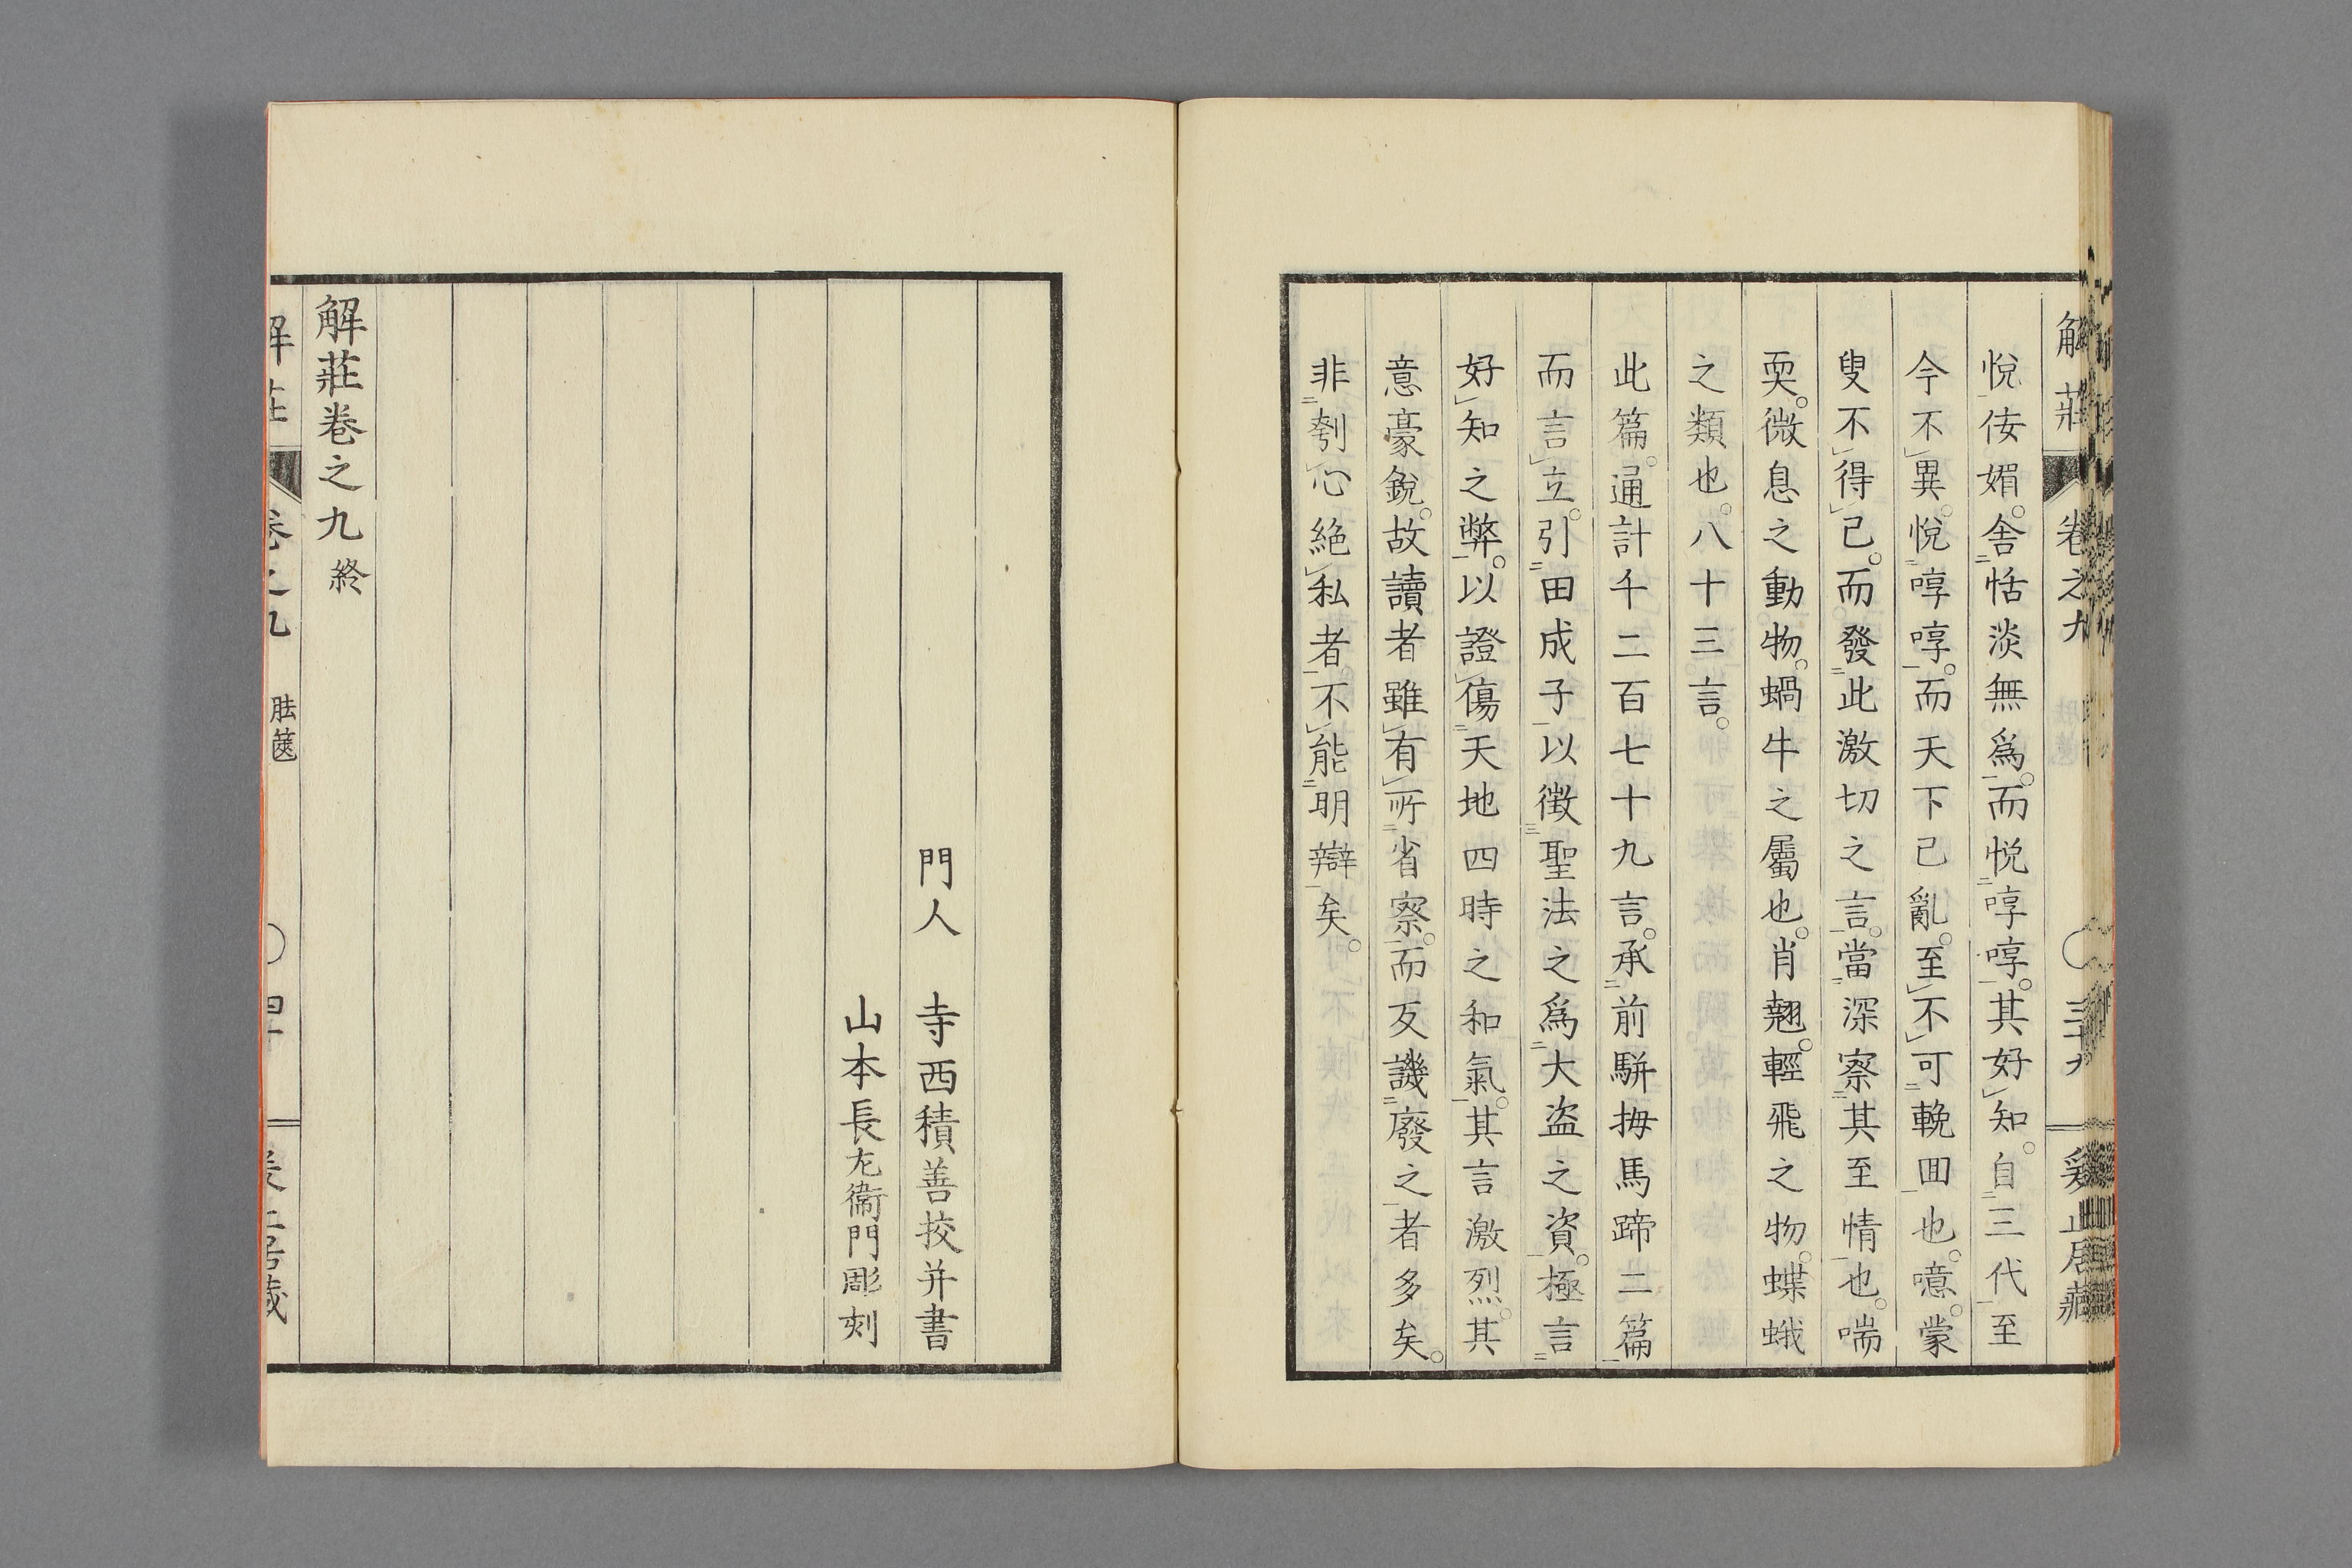 解莊 卷之九 〇 三十九
悅佞媚。舍恬淡無爲。而悅啍啍。其好知。自三代至
今不異。悅啍啍。而天下已亂。至不可輓回也。噫。蒙
叟不得已。而發此激切之言。當深察其至情也。喘
耎。微息之動物。蝸牛之屬也。肖翹。輕飛之物。蝶蛾
之類也。八十三言。
此篇。通計千二百七十九言。承前駢拇馬蹄二篇
而言立。引田成子以徴聖法之爲大盜之資。極言
好知之弊。以證傷天地四時之和氣。其言激烈。其
意豪銳。故讀者雖有所省察。而反譏廢之者多矣。
非刳心絶私者不能明辯矣。
門人 寺西積善挍并書
山本長左衞門彫刻
解莊卷之九終
卷之九 胠篋 〇 四十